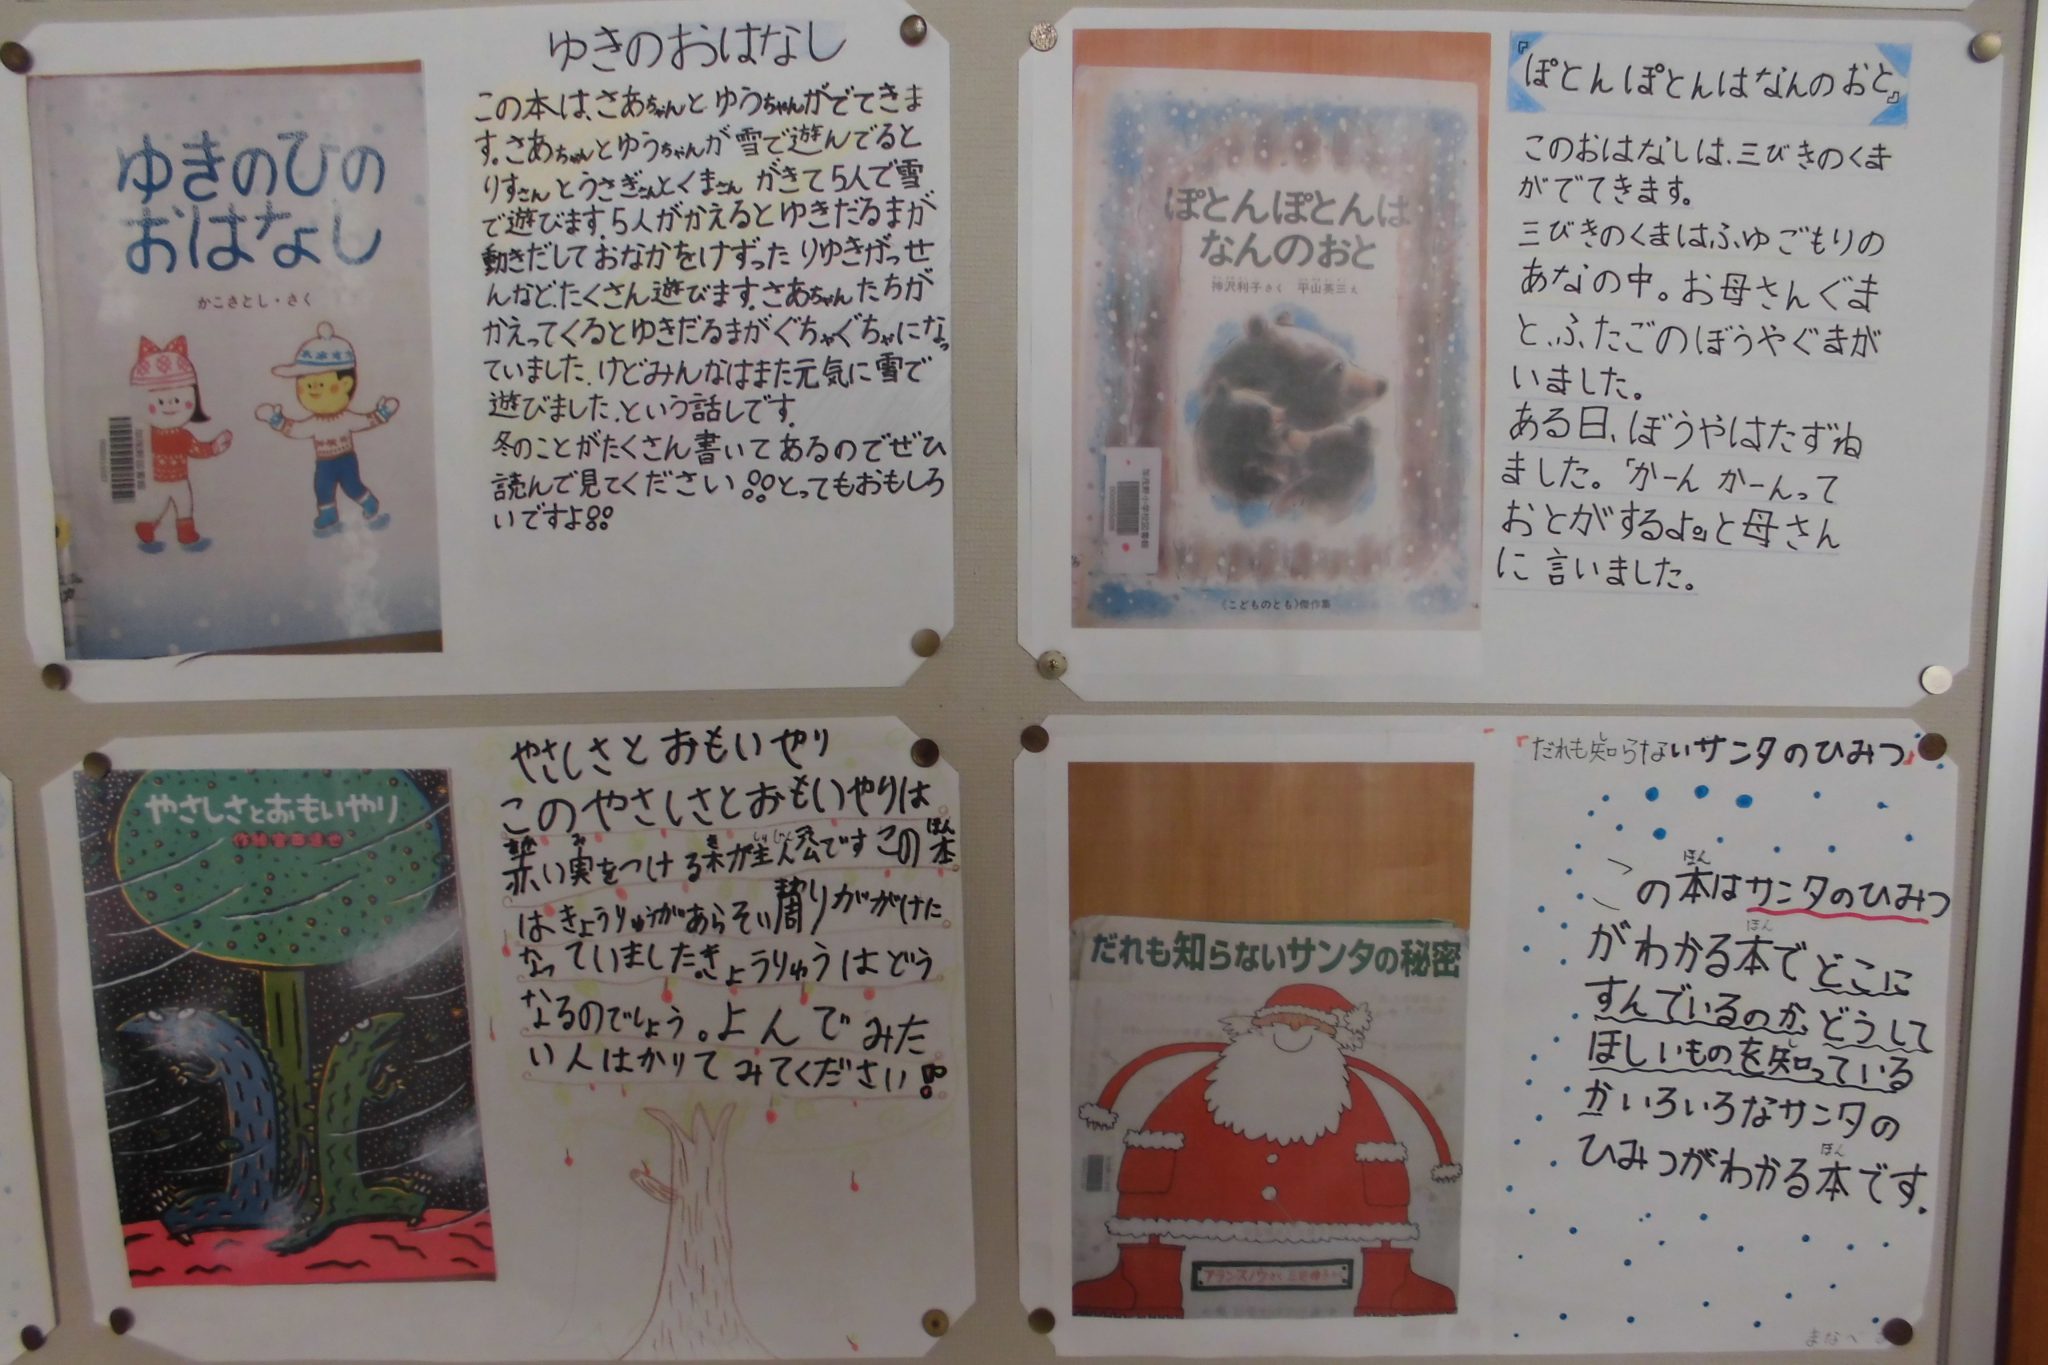 ゆきのひの
おはなし
かこさとし・さく
ゆきのおはなし
この本は、さあちゃんとゆうちゃんがでてきま
す。さあちゃんとゆうちゃんが雪で遊んでると
りすさんとうさぎさんとくまさんがきて5人で雪
で遊びます。5人がかえるとゆきだるまが
動きだしておなかをけずったりゆきがっせ
んなど、たくさん遊びます。さあちゃんたちが
かえってくるとゆきだるまがぐちゃぐちゃになっ
ていました。けどみんなはまた元気に雪で
遊びました。という話しです。
冬のことがたくさん書いてあるのでぜひ
読んで見てください!!とってもおもしろ
いですよ!!
ぽとんぽとんは
なんのおと
神沢利子さく 平山英三え
《こどものとも》傑作集
『ぽとんぽとんはなんのおと』
このおはなしは、三びきのくま
がでてきます。
三びきのくまはふゆごもりの
あなの中。お母さんぐま
と、ふたごのぼうやぐまが
いました。
ある日、ぼうやはたずね
ました。「かーん かーんって
おとがするよ。」と母さん
に言いました。
やさしさとおもいやり
作絵 宮西達也
やさしさとおもいやり
このやさしさとおもいやりは
赤い実をつける木が主人公ですこの本
はきょうりゅうがあらそい周りががけに
なっていました。きょうりゅうはどう
なるのでしょう。よんでみた
い人はかりてみてください!!
だれも知らないサンタの秘密
アランスノウさく 三辺律子やく
『だれも知らないサンタのひみつ』
この本はサンタのひみつ
がわかる本でどこに
すんでいるのか、どうして
ほしいものを知っている
かいろいろなサンタの
ひみつがわかる本です。